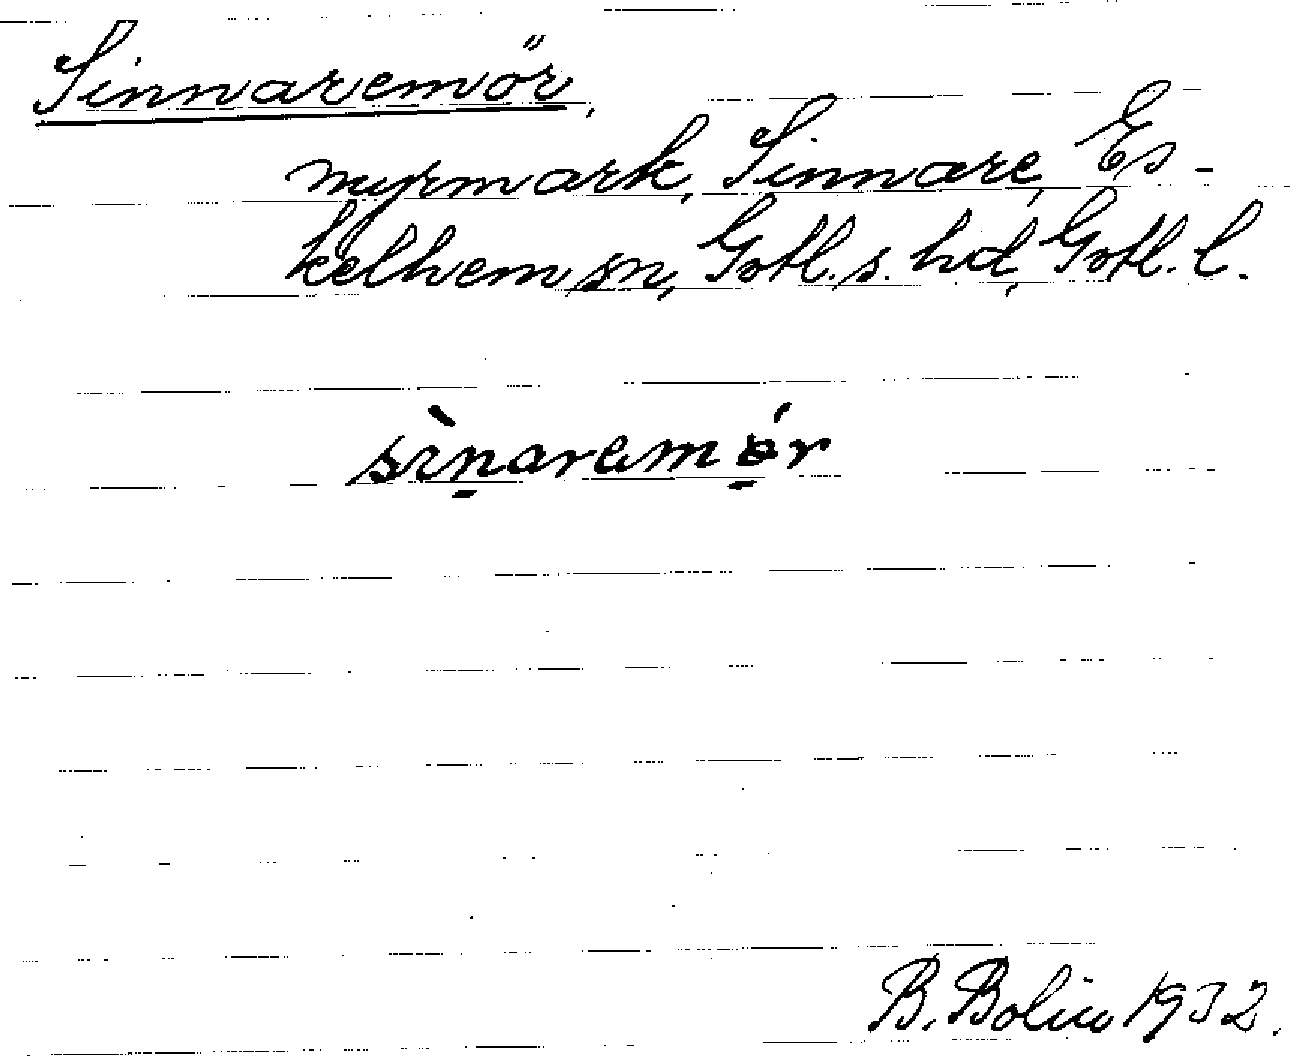 Sinnaremör,
myrmark, Sinnare, Es-
kelhem sn, Gotl. s. hd, Gotl. l.
sìn̠aremö̠́r
B. Bolin 1932.